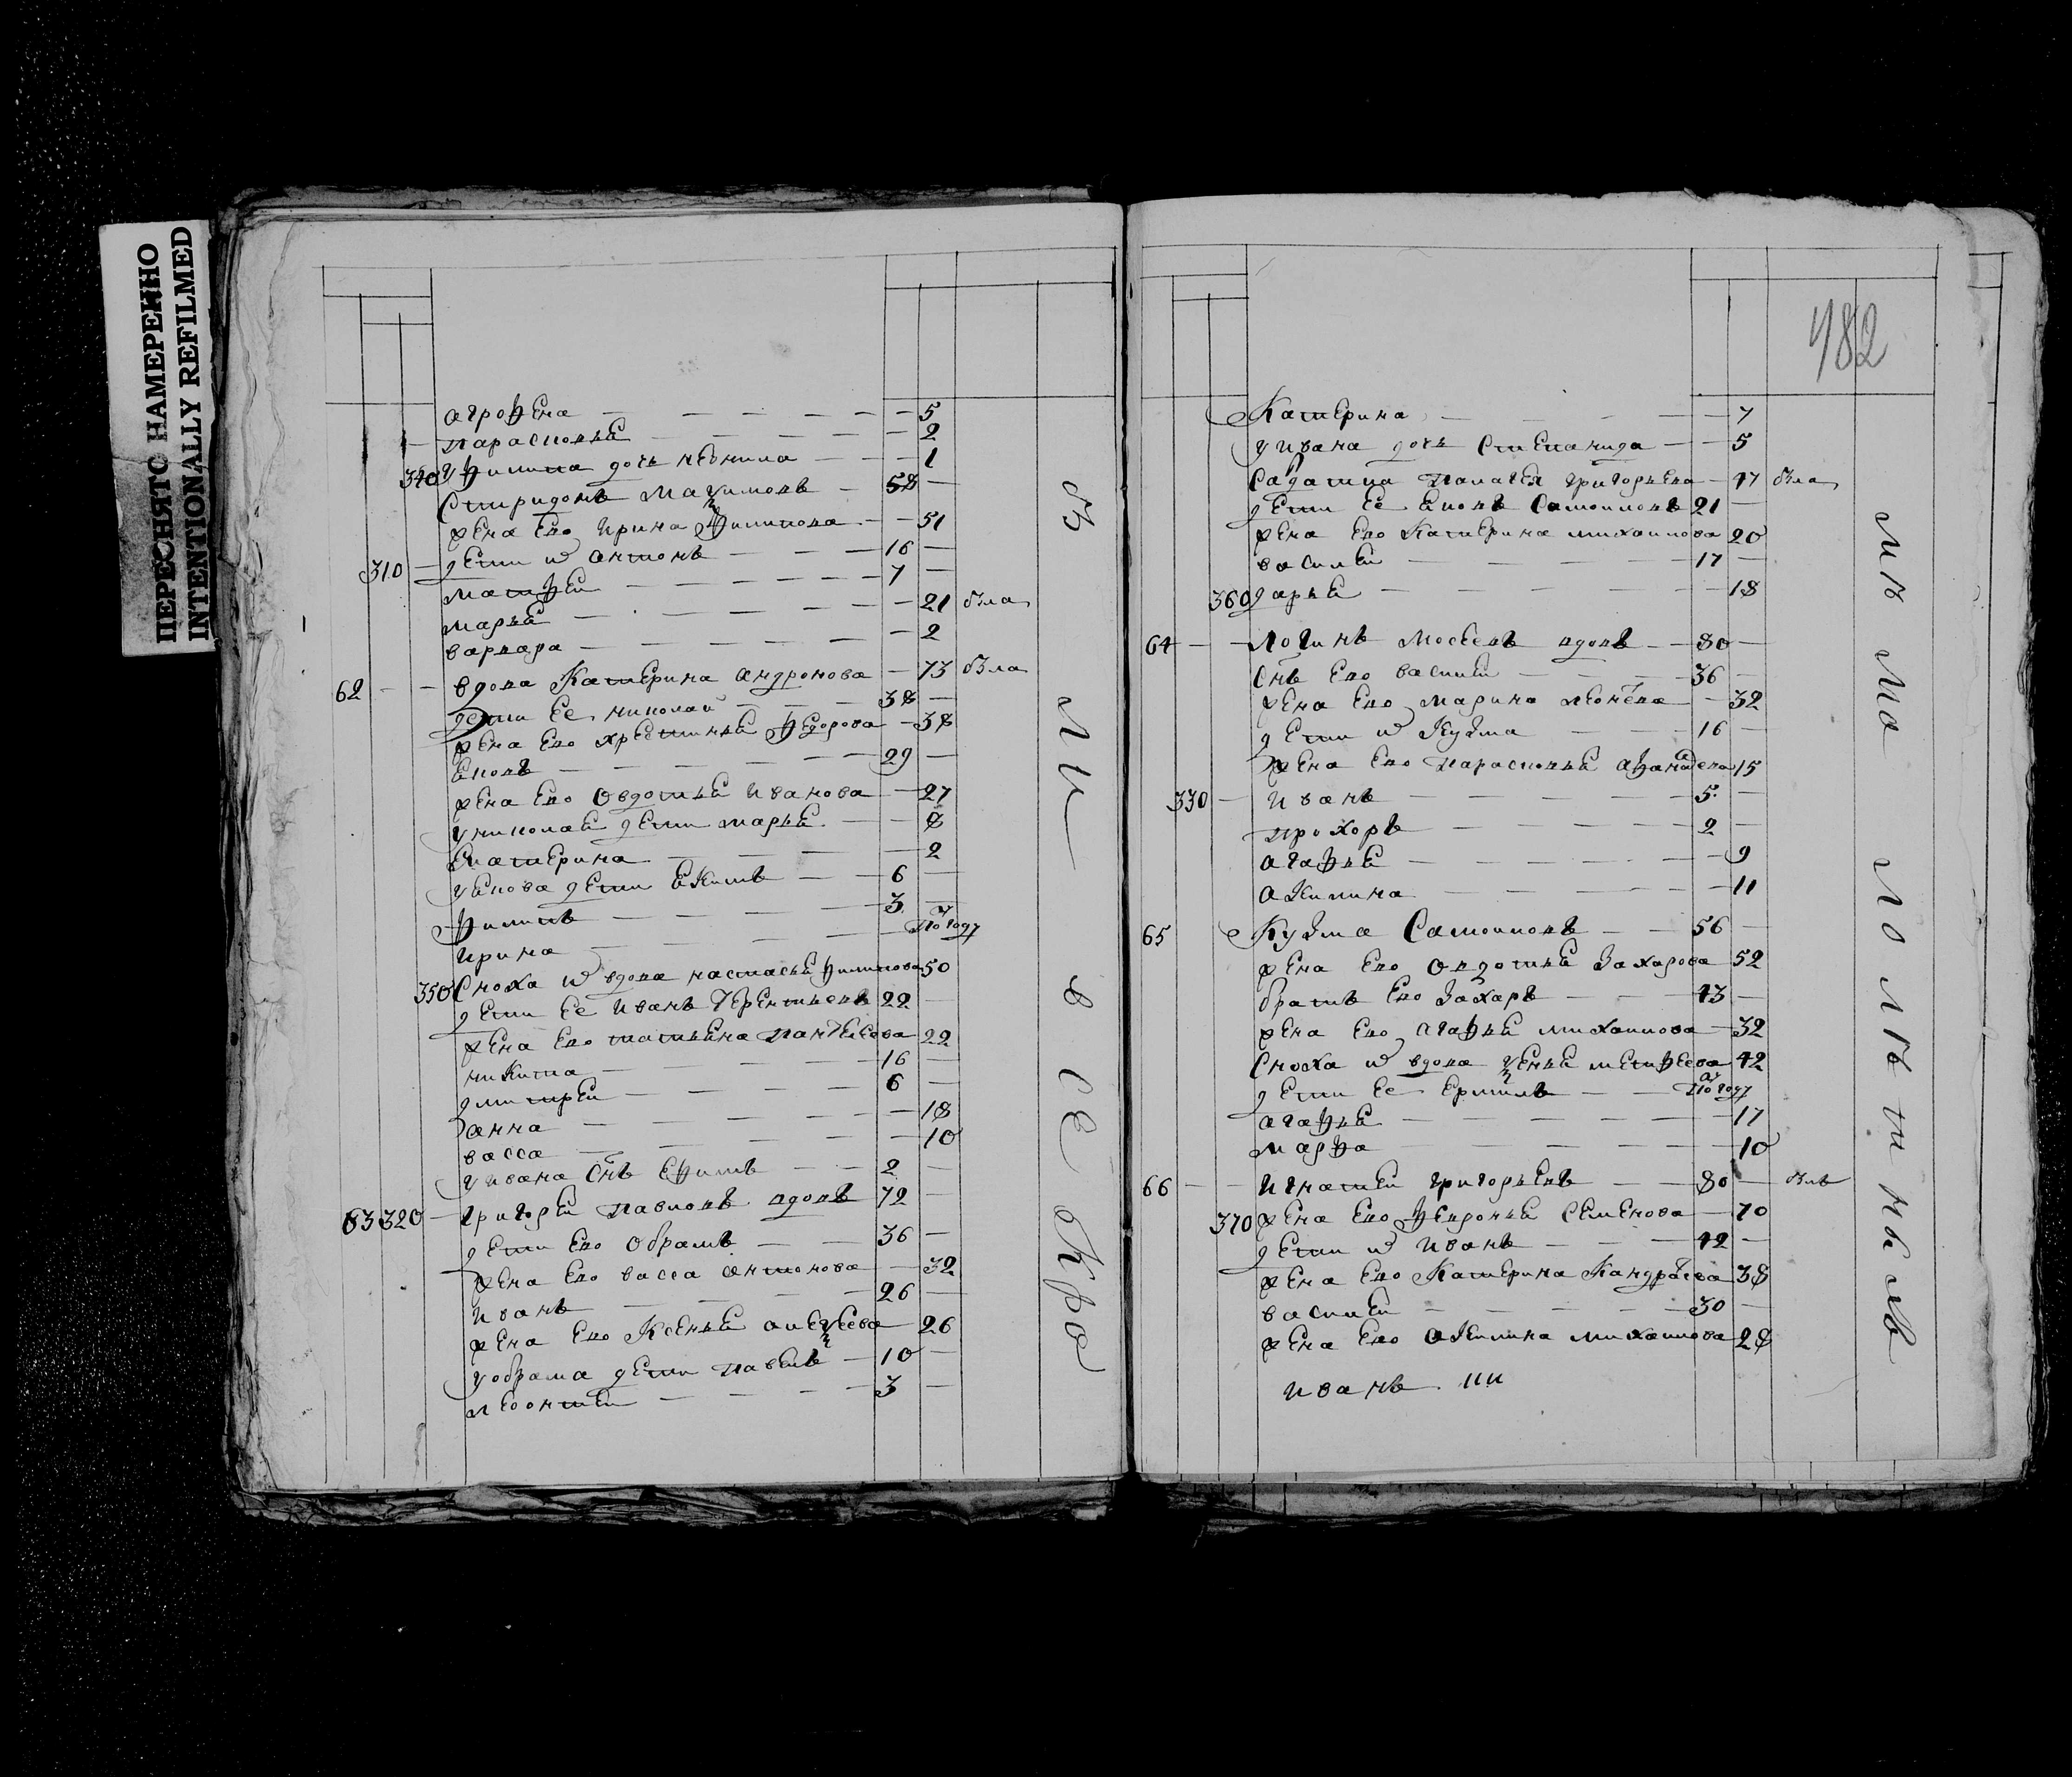 ПЕРЕСНЯТО НАМЕРЕННО
INTENTIONALLY REFILMED
агрофена — 5
парасковья — 2
340 уфилипа дочь неонила — 1
Спиридонъ Максимовъ — 58
жена ево ирина филипова — 51
310 — дети и антонъ — 16
матфеи — 7
марья — 21 бѣла
варвара — 2
62 — — вдова Катерина андронова — 73 бѣла
дети ее николаи — 38
жена ево хрестинья федорова — 38
яковъ — 29
жена ево овдотья иванова — 27
униколая дети марья — 8
екатерина — 2
уякова дети якимъ — 6
филипъ — 3
ирина — по году
350 Сноха и вдова настасья филипова 50
дети ее иванъ терентьевъ 22
жена ево татьяна пантелеева 22
никита — 16
дмитреи — 6
анна — 18
васса — 10
уивана снъ ефимъ — 2
63 320 — григореи павловъ вдовъ 72
дети ево обрамъ — 36
жена ево васса антонова — 32
иванъ — 26
жена ево Ксенья алексеева — 26
уобрама дети павелъ — 10
леонтеи — 3
482
Катерина — 7
уивана дочь степанида — 5
Салдатка палагея григорьева — 47 бѣла
дети ее яковъ Самоиловъ 21
жена ево Катерина михаилова 20
василеи — 17
360 дарья — 18
64 — — логинъ мосеевъ вдовъ — 80
снъ ево василеи — 36
жена ево марина леонтева — 32
дети и Кузма — 16
жена ево парасковья афанасева 15
330 — иванъ — 5
прохоръ — 2
агафья — 9
акилина — 11
65 Кузма Самоиловъ — 56
жена ево овдотья захарова 52
братъ ево захаръ — 43
жена ево агафья михаилова — 32
сноха и вдова ксенья матфеева 42
дети ее ермилъ — по году
агафья — 17
марфа — 10
66 — — игнатеи григорьевъ — 80 — бѣлъ
370 жена ево февронья семенова — 70
дети и иванъ — 42
жена ево Катерина Кандратева 38
василеи — 30
жена ево акилина михаилова 28
иванъ